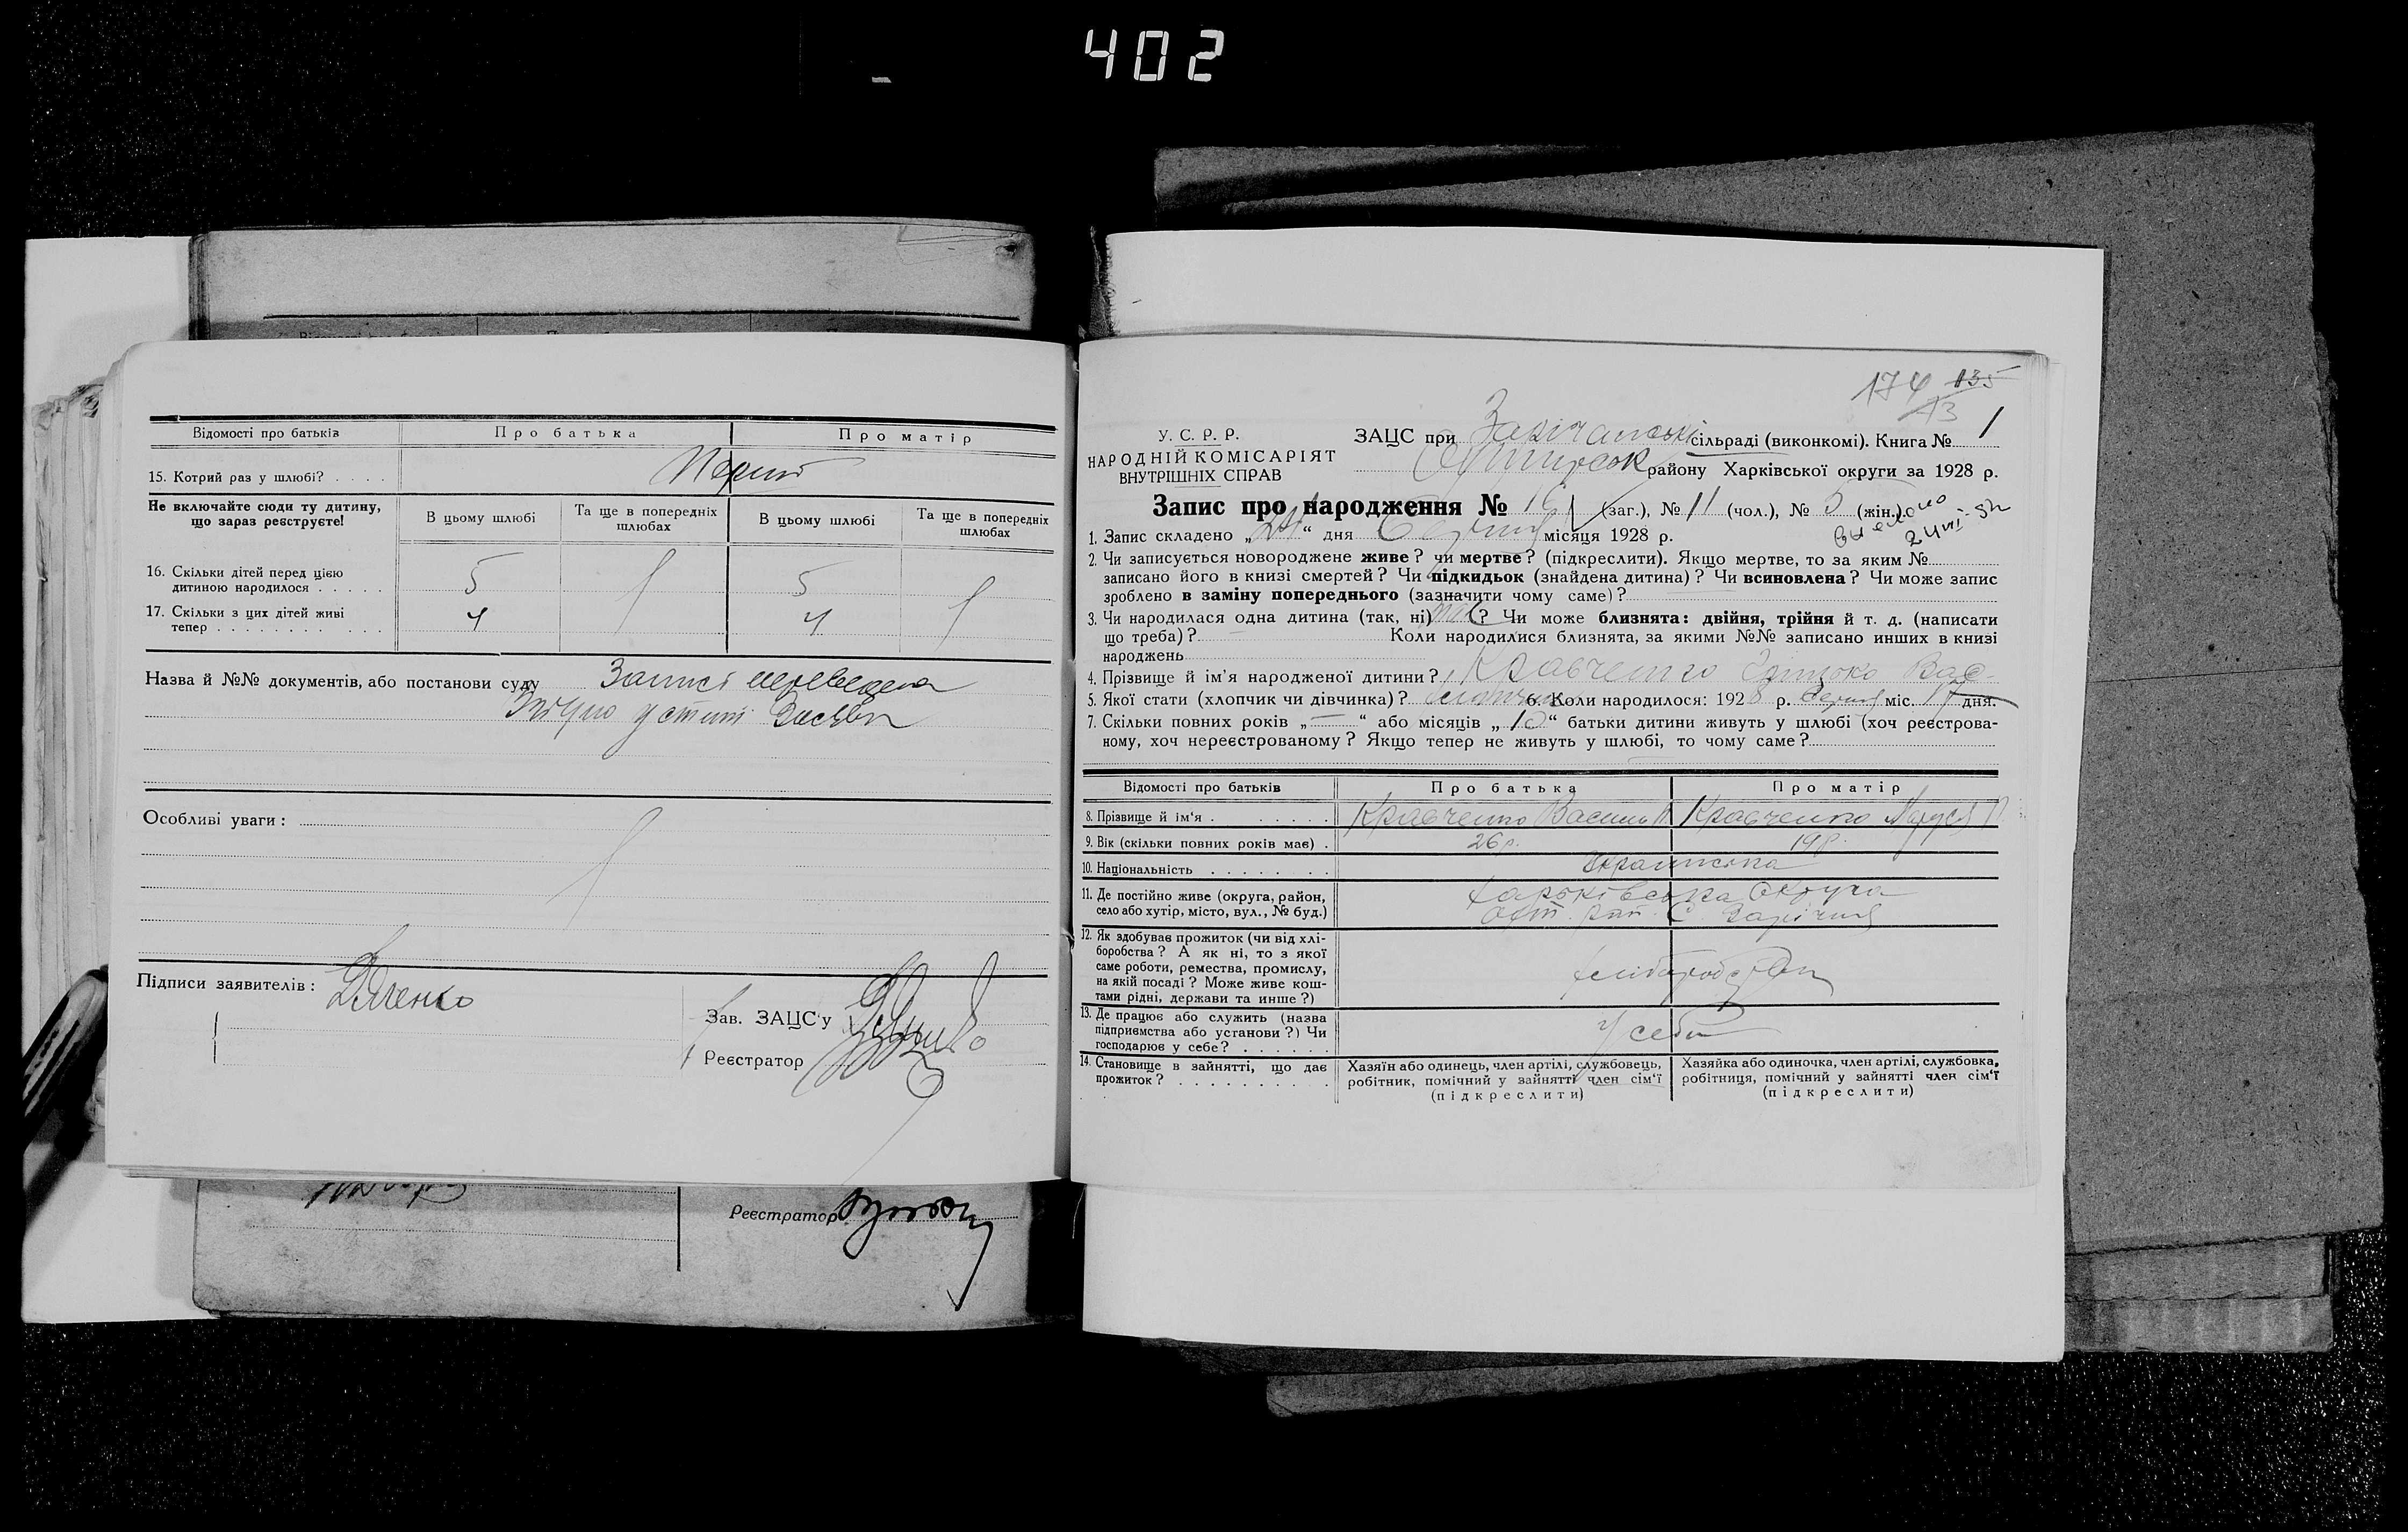 402
Відомості про батьків Про батька Про матір
15. Котрий раз у шлюбі? . . . .
Не включайте сюди ту дитину, що зараз реєструєте!
В цьому шлюбі
Та ще в попередніх шлюбах
В цьому шлюбі
Та ще в попередніх шлюбах
16. Скільки дітей перед цією
дитиною народилося . . . . . 5 5
17. Скільки з цих дітей живі
тепер . . . . . . . . . . . 4 4
Назва й №№ документів, або постанови суду Записі переведена
Особливі уваги :
Підписи заявителів :
Зав. ЗАЦС'у
Реєстратор
Реєстратор
174 135
13
У. С. Р. Р.
НАРОДНІЙ КОМІСАРІЯТ
ВНУТРІШНІХ СПРАВ
ЗАЦС при Зарічанські сільраді (виконкомі). Книга № 1
району Харківської округи за 1928 р.
Запис про народження № 16 (заг.), № 11 (чол.), № 5 (жін.).
1. Запис складено „ “ дня місяця 1928 р.
2. Чи записується новороджене живе? чи мертве? (підкреслити). Якщо мертве, то за яким №
записано його в книзі смертей? Чи підкидьок (знайдена дитина)? Чи всиновлена? Чи може запис
зроблено в заміну попереднього (зазначити чому саме)?
3. Чи народилася одна дитина (так, ні) так? Чи може близнята: двійня, трійня й т. д. (написати
що треба)? Коли народилися близнята, за якими №№ записано инших в книзі
народжень
4. Прізвище й ім'я народженої дитини? Кравченко Вас
5. Якої стати (хлопчик чи дівчинка)? хлопчик 6. Коли народилося: 1928 р. міс. 17 дня.
7. Скільки повних років „—“ або місяців „10“ батьки дитини живуть у шлюбі (хоч реєстрова-
ному, хоч нереєстрованому? Якщо тепер не живуть у шлюбі, то чому саме?
Відомості про батьків Про батька Про матір
8. Прізвище й ім'я . . . . . . Кравченко Василь Кравченко Маруся
9. Вік (скільки повних років має) . 26р. 19р.
10. Національність . . . . . . . Українська
11. Де постійно живе (округа, район,
село або хутір, місто, вул., № буд.)
Харьківська Округа
12. Як здобуває прожиток (чи від хлі-
боробства? А як ні, то з якої
саме роботи, ремества, промислу,
на якій посаді? Може живе кош-
тами рідні, держави та инше?)
13. Де працює або служить (назва
підприємства або установи?) Чи
господарює у себе? . . . . . .
У себе
14. Становище в зайнятті, що дає
прожиток? . . . . . . . . . .
Хазяїн або одинець, член артілі, службовець,
робітник, помічний у зайнятті член сім'ї
(підкреслити)
Хазяйка або одиночка, член артілі, службовка,
робітниця, помічний у зайнятті член сім'ї
(підкреслити)